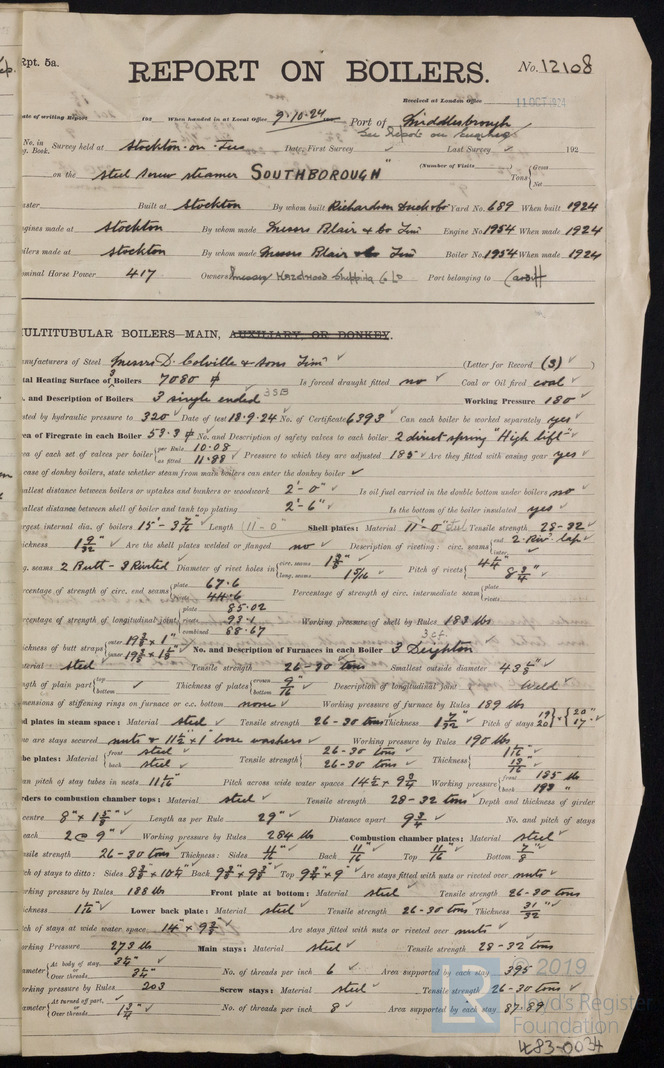 Rpt. 5a.
REPORT ON BOILERS.
No. 12108
Received at London Office 11 OCT 1924
ate of writing Report 192 When handed in at Local Office 9/10/24 Port of Middlesbrough
See Report on Engines
No. in Survey held at Stockton-on-Tees Date, First Survey ✓ Last Survey ✓ 192
g. Book.
(Number of Visits
on the steel screw steamer "SOUTHBOROUGH" Tons { Gross Net
aster Built at Stockton By whom built Richardson Duck & Co Yard No. 689 When built 1924
gines made at Stockton By whom made Messrs Blair & Co Lim Engine No. 1954 When made 1924
ilers made at Stockton By whom made Messrs Blair & Co Lim Boiler No. 1954 When made 1924
minal Horse Power 417 Owners Messrs Hazelwood Shipping Co Ld Port belonging to Cardiff
ULTITUBULAR BOILERS—MAIN, AUXILIARY OR DONKEY.
nufacturers of Steel Messrs D. Colville & Sons Lim ✓ (Letter for Record (S) ✓ )
tal Heating Surface of Boilers 7080 Is forced draught fitted no ✓ Coal or Oil fired coal ✓
. and Description of Boilers 3 single ended 3SB Working Pressure 180
sted by hydraulic pressure to 320 Date of test 18.9.24 No. of Certificate 6393 Can each boiler be worked separately yes
ea of Firegrate in each Boiler 53.3 No. and Description of safety valves to each boiler 2 direct spring "High lift"
ea of each set of valves per boiler { per Rule 10.08 as fitted 11.88 Pressure to which they are adjusted 185 ✓ Are they fitted with easing gear yes
case of donkey boilers, state whether steam from main boilers can enter the donkey boiler ✓
allest distance between boilers or uptakes and bunkers or woodwork 2'-0" Is oil fuel carried in the double bottom under boilers no
allest distance between shell of boiler and tank top plating 2'-6" Is the bottom of the boiler insulated yes
rgest internal dia. of boilers 15'-3 7/16" Length 11-0 Shell plates: Material 11'-0" steel Tensile strength 28-32
ickness 1 9/32" Are the shell plates welded or flanged no Description of riveting: circ. seams { end 2 Riv. lap inter.
g. seams 2 Butt - 3 Riveted Diameter of rivet holes in { circ. seams 1 3/8" long. seams 1 5/16 Pitch of rivets { 4 1/4" 8 3/4"
rcentage of strength of circ. end seams { plate 67.6 rivets 44.6 Percentage of strength of circ. intermediate seam { plate rivets
rcentage of strength of longitudinal joint { plate 85.02 rivets 93.1 combined 88.67 Working pressure of shell by Rules 183 lbs
ickness of butt straps { outer 19 3/8 x 1" inner 19 3/8 x 1 1/8" No. and Description of Furnaces in each Boiler 3 Deighton
terial steel Tensile strength 26-30 tons Smallest outside diameter 43 5/8"
gth of plain part { top bottom Thickness of plates { crown bottom 9/16 Description of longitudinal joint Weld
mensions of stiffening rings on furnace or c.c. bottom none Working pressure of furnace by Rules 189 lbs
d plates in steam space: Material steel Tensile strength 26-30 tons Thickness 1 7/32" Pitch of stays 19/20 x 20"/17"
w are stays secured nuts & 11 1/2" x 1" loose washers Working pressure by Rules 190 lbs
be plates: Material { front steel back steel Tensile strength { 26-30 tons 26-30 tons Thickness { 1 1/16" 13/16"
an pitch of stay tubes in nests 11 1/16" Pitch across wide water spaces 14 1/2 x 9 3/4 Working pressure { front 185 lbs back 193 "
rders to combustion chamber tops: Material steel Tensile strength 28-32 tons Depth and thickness of girder
centre 8" x 1 5/8" Length as per Rule 29" Distance apart 9 3/4 No. and pitch of stays
each 2 @ 9" Working pressure by Rules 284 lbs Combustion chamber plates: Material steel
nsile strength 26-30 tons Thickness: Sides 11/16" Back 11/16 Top 11/16 Bottom 7/8"
ch of stays to ditto: Sides 8 3/8 x 10 1/4" Back 9 3/8 x 9 3/8" Top 9 3/4 x 9" Are stays fitted with nuts or riveted over nuts
rking pressure by Rules 188 lbs Front plate at bottom: Material steel Tensile strength 26-30 tons
ickness 1 1/16" Lower back plate: Material steel Tensile strength 26-30 tons Thickness 31/32"
ch of stays at wide water space 14" x 9 3/8" Are stays fitted with nuts or riveted over nuts
rking Pressure 273 lbs Main stays: Material steel Tensile strength 28-32 tons
ameter { At body of stay, 3 1/4" Over threads 3 1/4" No. of threads per inch 6 Area supported by each stay 395
rking pressure by Rules 203 Screw stays: Material steel Tensile strength 26-30 tons
ameter { At turned off part, Over threads 1 3/4" No. of threads per inch 8 Area supported by each stay 87.89
© 2019
LR
Lloyd's Register
Foundation
W83-0034